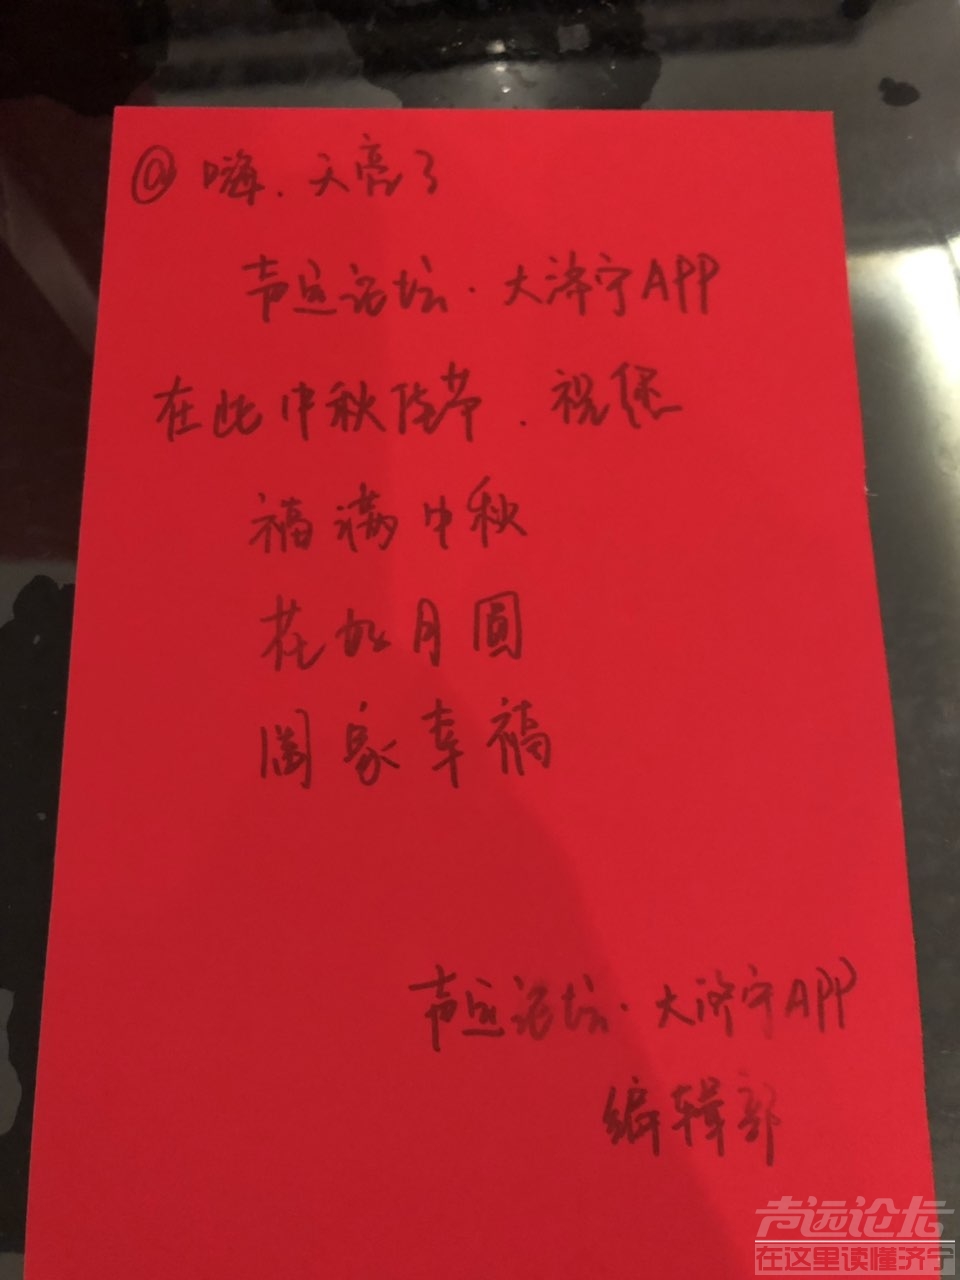 @嗨.天亮了
声远论坛·大济宁APP
在此中秋佳节.祝您
福满中秋
花如月圆
阖家幸福
声远论坛·大济宁APP
编辑部
声远论坛
在这里读懂济宁